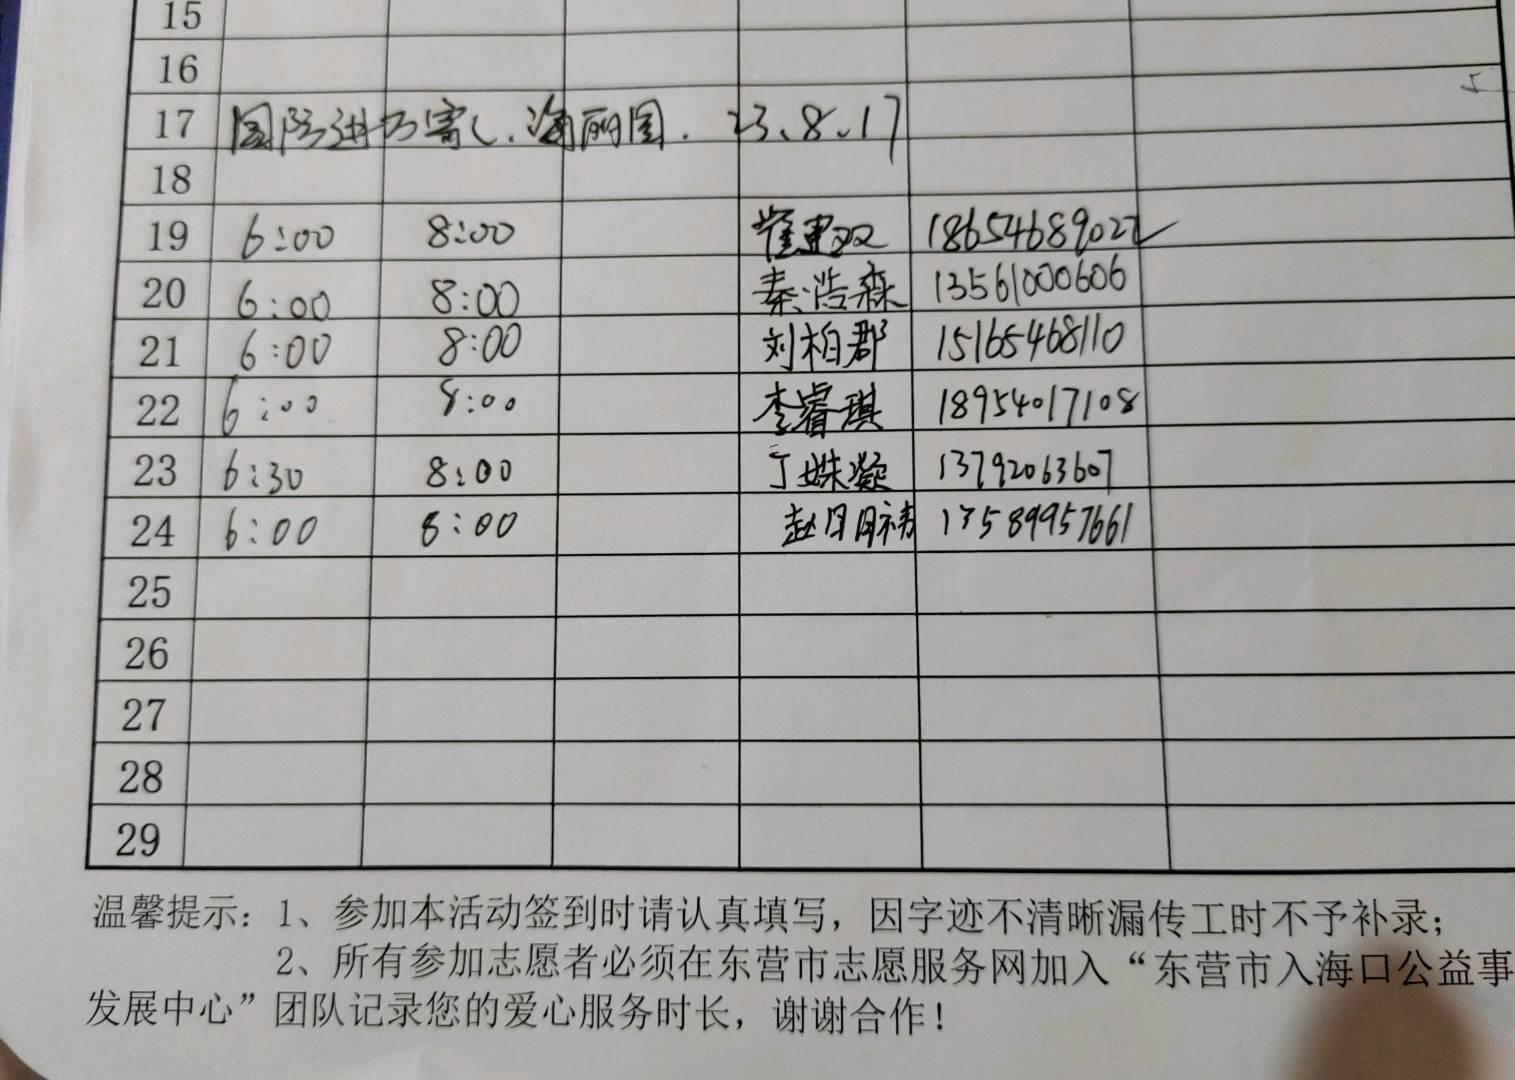 15
16
17 国防进万家、海丽园. 23、8、17
18
19 6:00 8:00 崔建双 18654689022
20 6:00 8:00 秦浩森 13561000606
21 6:00 8:00 刘柏郡 15165468110
22 6:00 8:00 李睿琪 18954017108
23 6:30 8:00 丁姝凝 13792063607
24 6:00 8:00 13589957661
25
26
27
28
29
温馨提示：1、参加本活动签到时请认真填写，因字迹不清晰漏传工时不予补录；
2、所有参加志愿者必须在东营市志愿服务网加入“东营市入海口公益事
发展中心”团队记录您的爱心服务时长，谢谢合作！